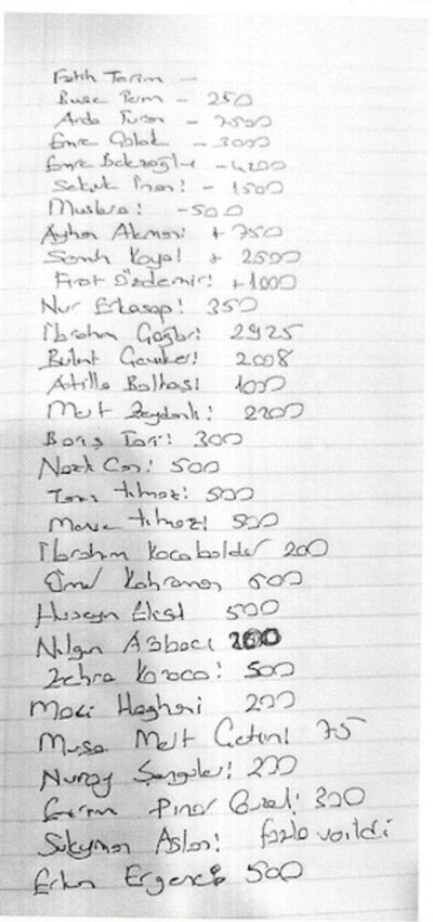 Fatih Terim -
Buse Terim - 250
Arda Turan - 7500
Emre Çolak - 3000
Emre Belezoğlu - 4200
Selçuk İnan! - 1500
Muslera! - 500
Ayhan Akman! + 750
Semih Kaya! + 2500
Fırat Özdemir! +1000
Nur Erkasap! 350
İbrahim Çağlar! 2925
Bülent 2.008
Atilla Baltaş! 1000
Mert Zeydanlı! 2200
Barış 300
Nazlı Can! 500
Tanrı Yılmaz! 500
Merve Yılmaz! 500
İbrahim Kocabalder 200
Ömer Kahraman 500
Hüseyin Ekşi 500
Nilgün 200
Zehra Karaca! 500
Maci Haghani 200
Musa Mert Çetin! 75
Nuray 200
Pınar Güzel! 300
Süleyman Aslan! fazla verildi
Erkan Ergenç 500